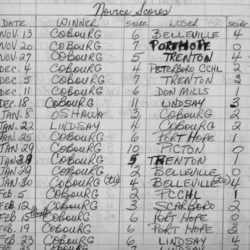 Novice Scores
DATE WINNER SCORE LOSER SCORE
NOV. 13 COBOURG 6 BELLEVILLE 4
NOV. 20 COBOURG 7 PORT HOPE 0
NOV. 27 COBOURG 5 TRENTON 4
DEC. 4 COBOURG 4 PETERBORO CCHL 3
DEC. 5 COBOURG 7 TRENTON 3
DEC. 11 COBOURG 6 DON MILLS 1
DEC. 18 COBOURG 11 LINDSAY 3
JAN. 8 OSHAWA 3 COBOURG 2
JAN. 22 LINDSAY 4 COBOURG 2
JAN. COBOURG 6 PORT HOPE 1
JAN. 29 COBOURG 10 PICTON
JAN. COBOURG 5 TRENTON 1
JAN. 29 COBOURG 2 BELLEVILLE 0
JAN. 30 COBOURG 4 BELLEVILLE 4
FEB. 5 COBOURG P.CCHL
FEB. 12 COBOURG 3 SCARBORO 2
FEB. 15 COBOURG 6 PORT HOPE 0
FEB. 19 COBOURG 6 PORT HOPE 3
FEB. 23 COBOURG 6 LINDSAY
COBOURG LINDSAY